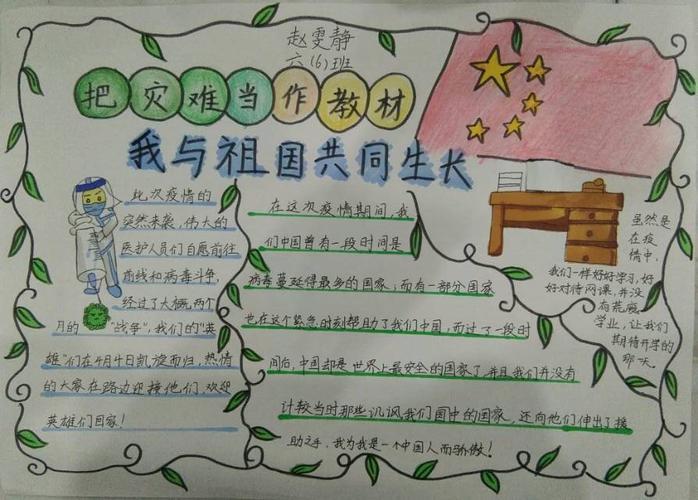 赵雯静
六(6)班
把灾难当作教材
我与祖国共同生长
此次疫情的
突然来袭,伟大的
医护人员们自愿前往
前线和病毒斗争,
经过了大概两个
月的"战争",我们的"英
雄"们在4月4日凯旋而归,热情
的大家在路边迎接他们,欢迎
英雄们回家!
在这次疫情期间,我
们中国曾有一段时间是
病毒蔓延得最多的国家,而有一部分国家
也在这个紧急时刻帮助了我们中国,而过了一段时
间后,中国却是世界上最安全的国家了,并且我们并没有
计较当时那些讥讽我们国中的国家,还向他们伸出了援
助之手,我为我是一个中国人而骄傲!
虽然是
在疫
情中,
我们一样好好学习,好
好对待网课,并没
有荒废
学业,让我们
期待开学的
那一天。